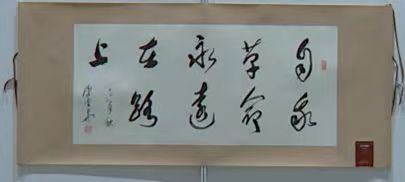 自我
革命
永遠
在路
上